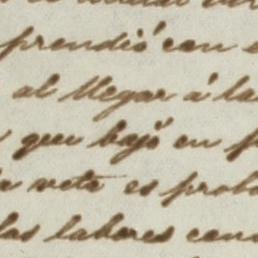 prendió con
al llegar á la
que bajó en
veta es proba
las labores con